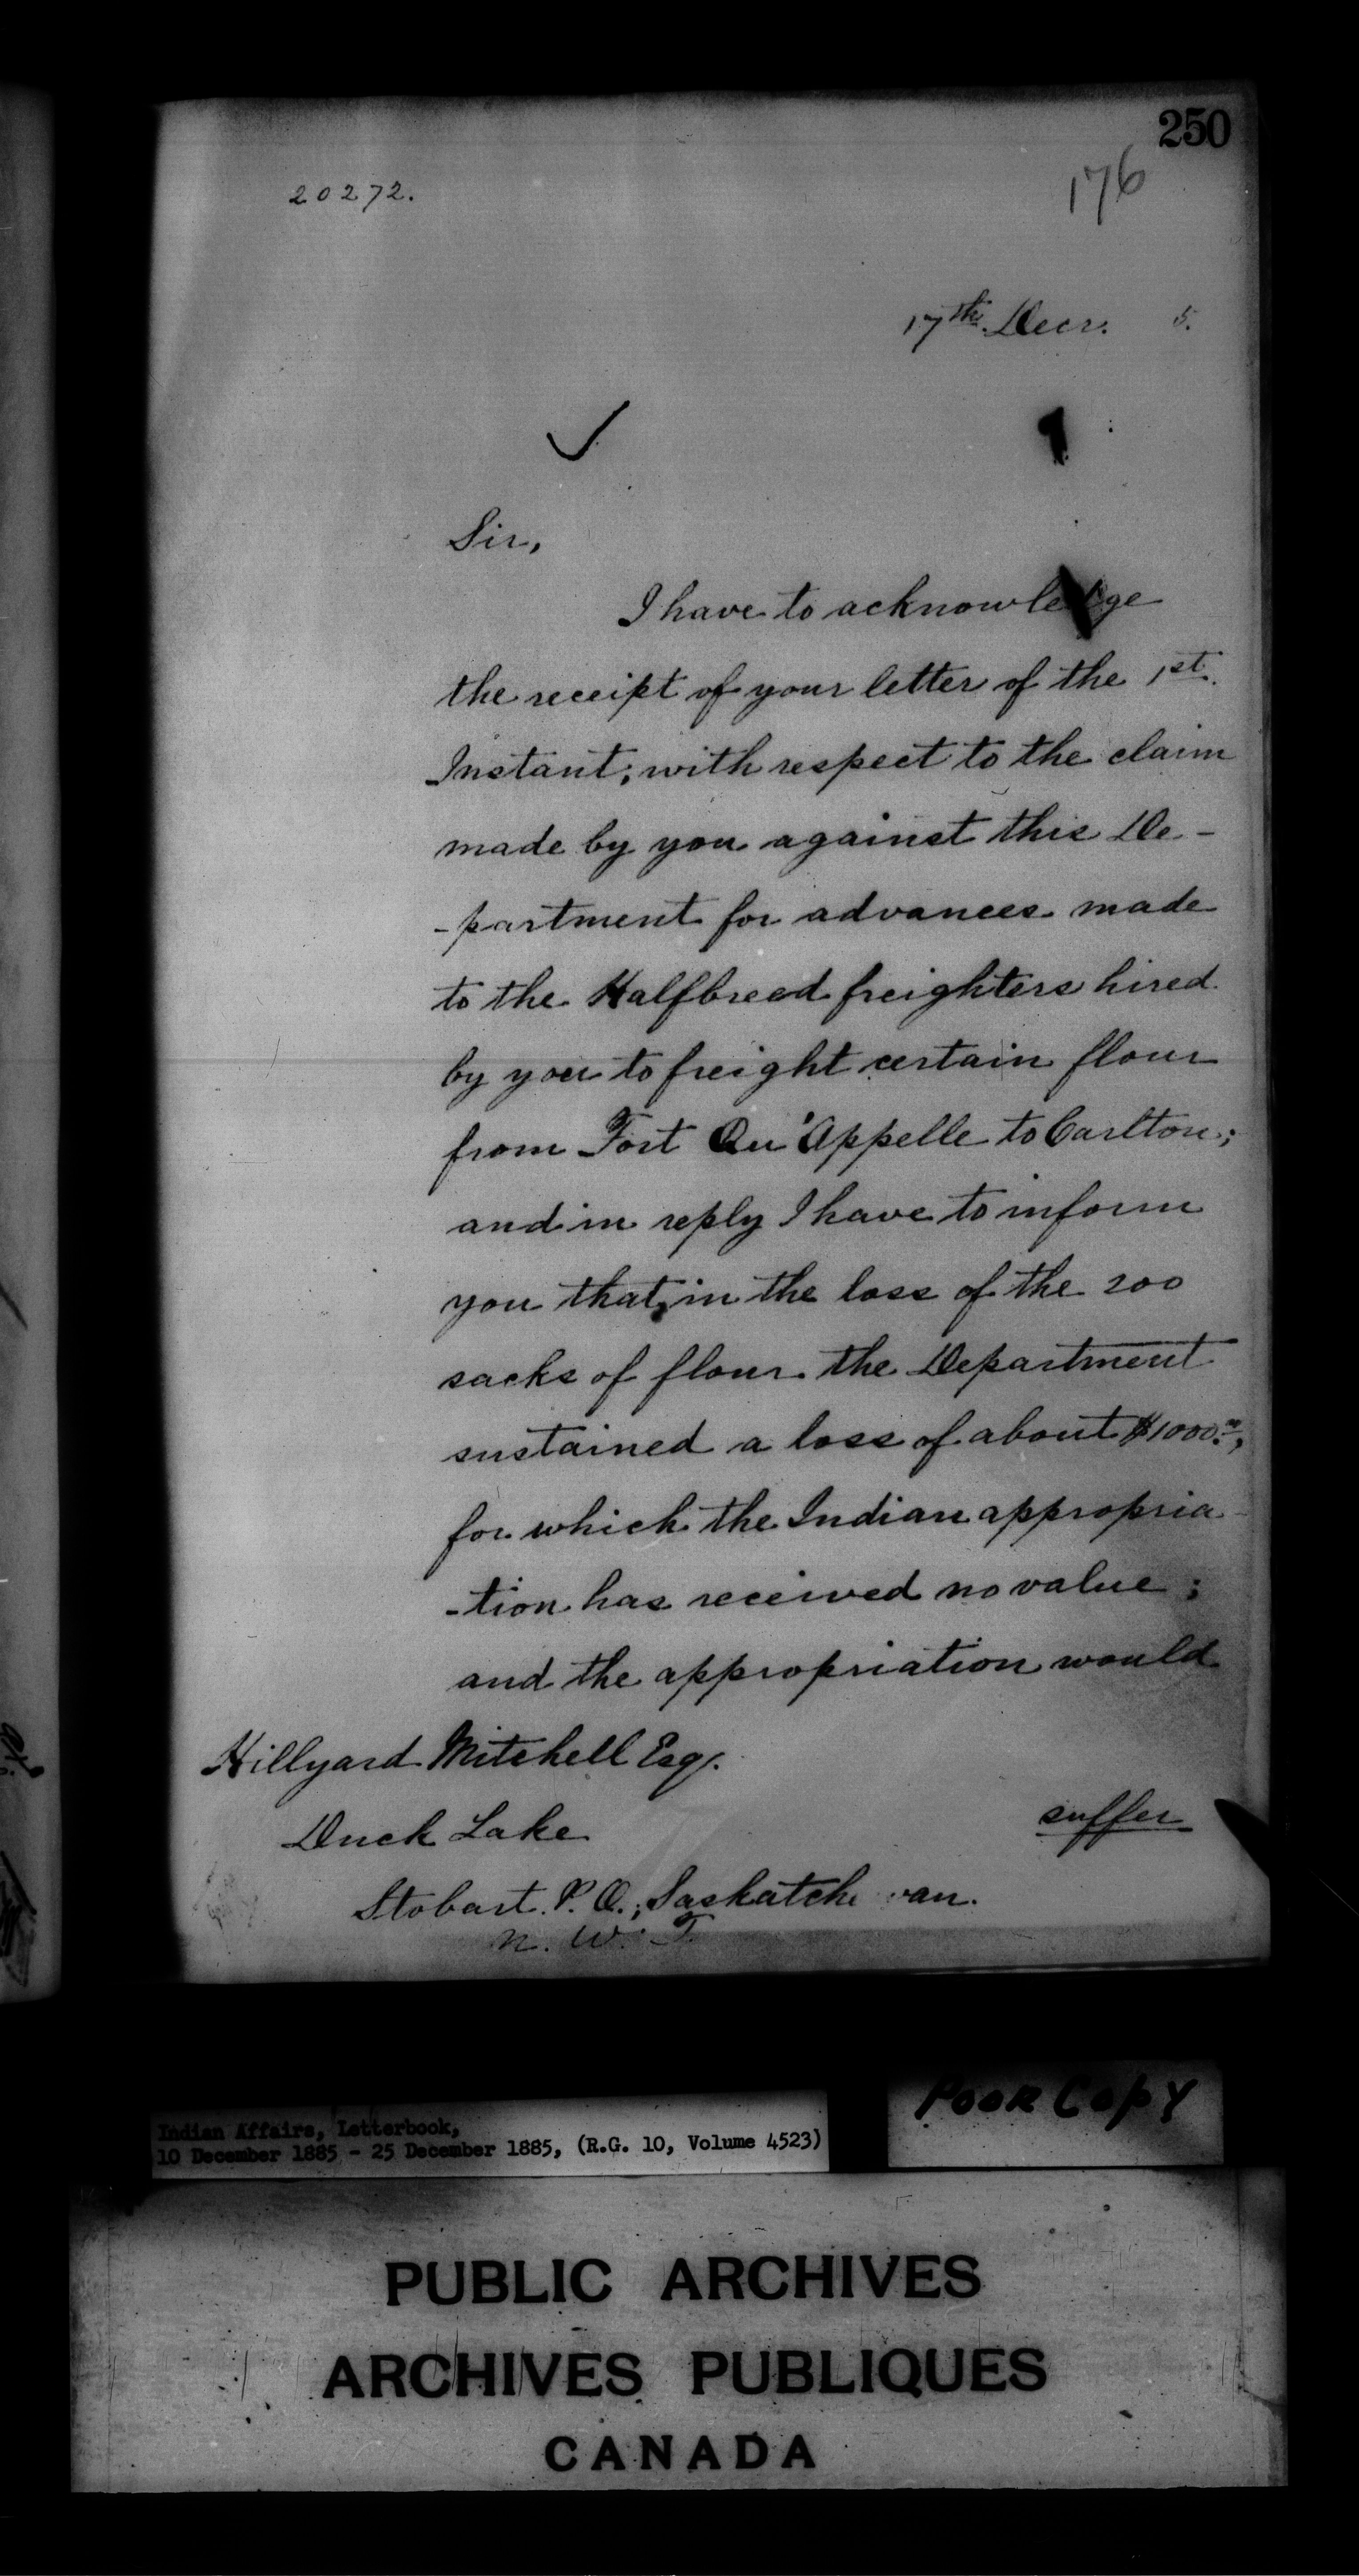 250
176
20272.
17th. Decr. 5.
Sir,
I have to acknowledge
the receipt of your letter of the 1st.
Instant; with respect to the claim
made by you against this De-
-partment for advances made
to the Halfbreed freighters hired
by you to freight certain flour
from Fort Qu'Appelle to Carlton;
and in reply I have to inform
you that, in the loss of the 200
sacks of flour the Department
sustained a loss of about $1000.00,
for which the Indian appropria-
-tion has received no value;
and the appropriation would
Hillyard Mitchell Esq.
Duck Lake
suffer
Stobart P.O., Saskatchewan.
N. W. T.
Poor Copy
Indian Affairs, Letterbook,
10 December 1885 - 25 December 1885, (R.G. 10, Volume 4523)
PUBLIC ARCHIVES
ARCHIVES PUBLIQUES
CANADA